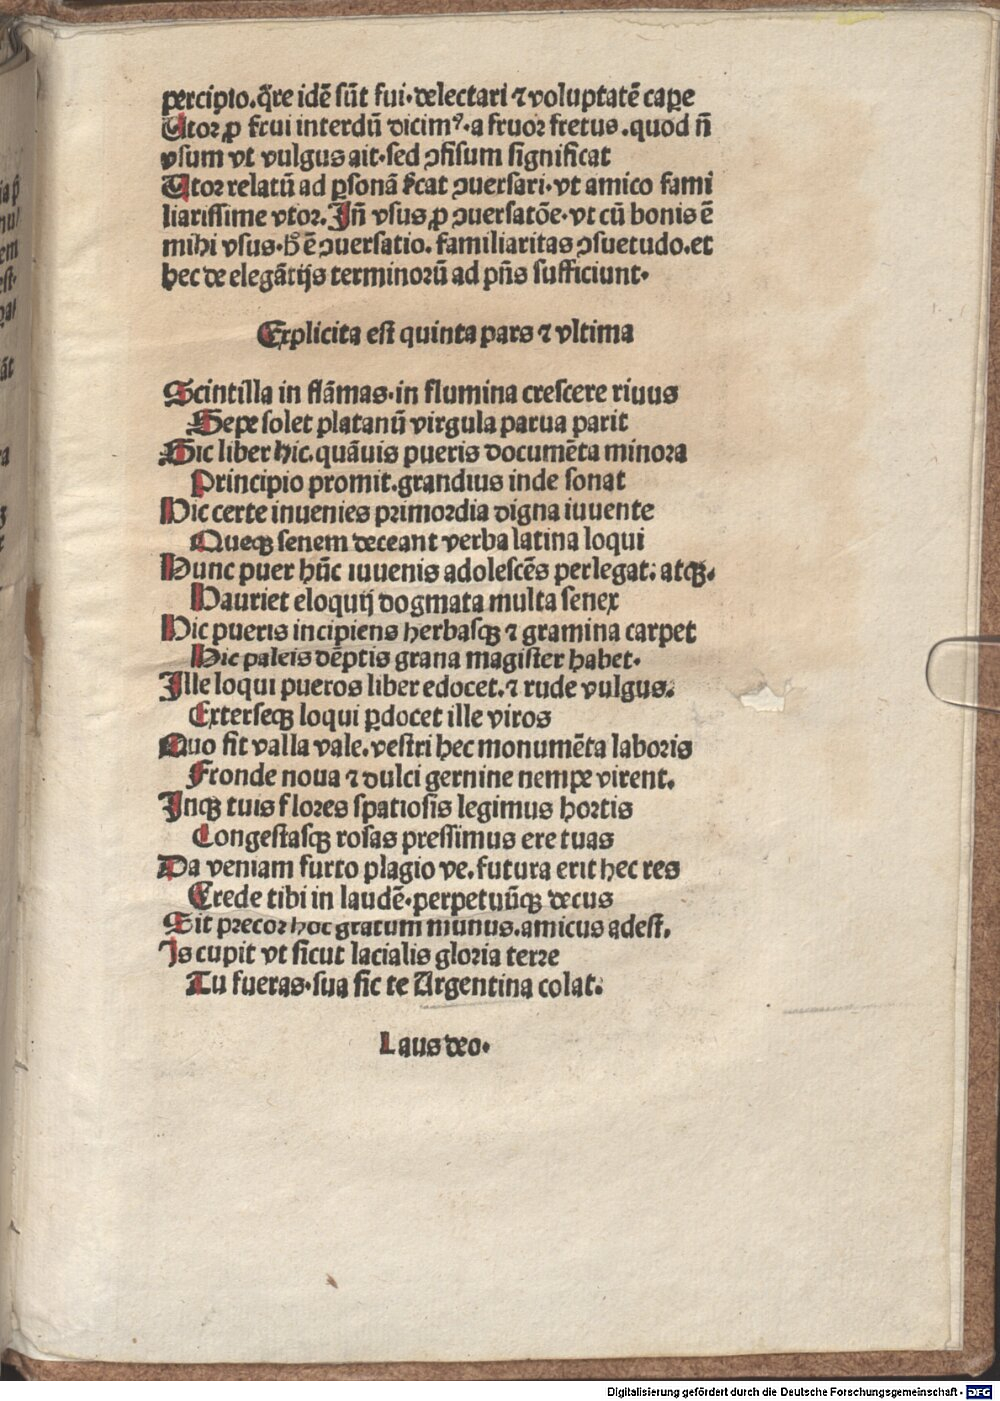 percipio.q̄re idē sūt fui·delectari ⁊ voluptatē capere
Utor ꝓ frui interdū dicimꝰ·a fruor fretus.quod ñ
vsum vt vulgus ait·sed ꝯfisum significat
Utor relatū ad ꝑsonā s̄cat ꝯuersari·vt amico fami
liarissime vtor.Iñ vsus ꝓ ꝯuersatōe·vt cū bonis ē
mihi vsus·h̄ ē ꝯuersatio.familiaritas ꝯsuetudo.et
hec de elegātijs terminorū ad p̄ñs sufficiunt·
Explicita est quinta pars ⁊ vltima
Scintilla in flāmas·in flumina crescere riuus
Sepe solet platanū virgula parua parit
Sic liber hic.quāuis pueris documēta minora
Principio promit.grandius inde sonat
Hic certe inuenies primordia digna iuuente
Queqꝫ senem deceant verba latina loqui
Hunc puer hūc iuuenis adolescēs perlegat: atqꝫ·
Hauriet eloquij dogmata multa senex
Hic pueris incipiens herbasqꝫ ⁊ gramina carpet
Hic paleis dēptis grana magister habet·
Ille loqui pueros liber edocet.⁊ rude vulgus:
Exterseqꝫ loqui ꝑdocet ille viros
Quo fit valla vale.vestri hec monumēta laboris
Fronde noua ⁊ dulci gernine nempe virent.
Inqꝫ tuis flores spatiosis legimus hortis
Congestasqꝫ rosas pressimus ere tuas
Da veniam furto plagio ve.futura erit hec res
Crede tibi in laudē·perpetuūqꝫ decus
Sit precor hoc gratum munus.amicus adest.
Is cupit vt sicut lacialis gloria terre
Tu fueras·sua sic te Argentina colat:
Laus deo·
ia p̄
em
est·
āt
Digitalisierung gefördert durch die Deutsche Forschungsgemeinschaft - DFG